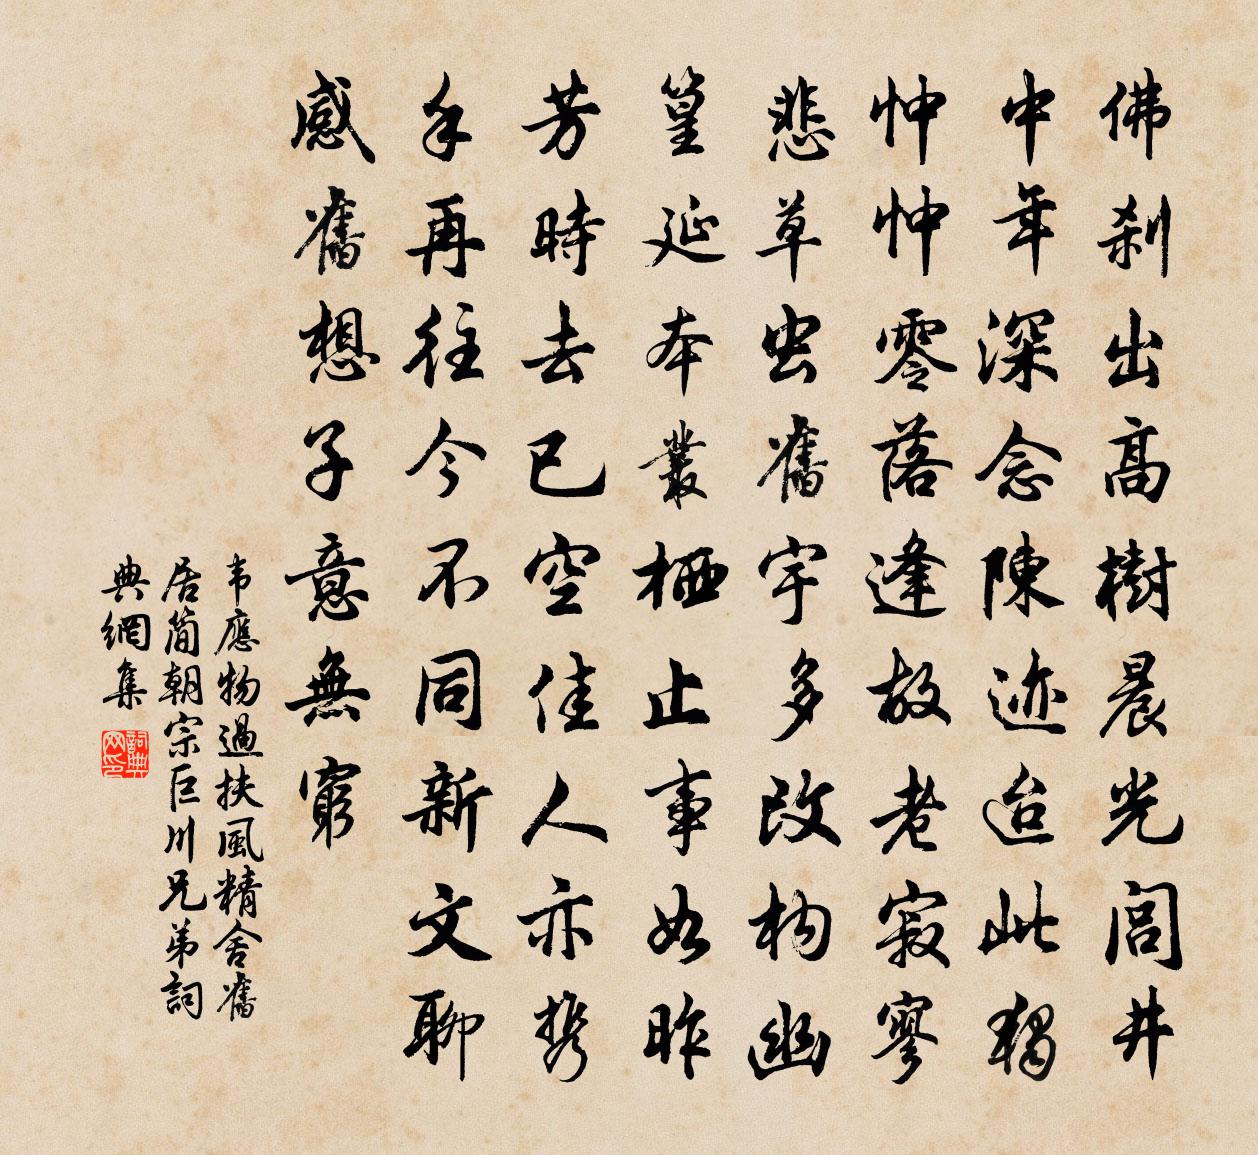 佛刹出高樹晨光閭井
中年深念陳迹迨此獨
忡忡零落逢故老寂寥
悲草虫舊宇多改构幽
篁延本叢栖止事如昨
芳時去已空佳人亦携
手再往今不同新文聊
感舊想子意無窮
韦應物過扶風精舍舊
居简朝宗巨川兄弟詞
典網集
詞典网印